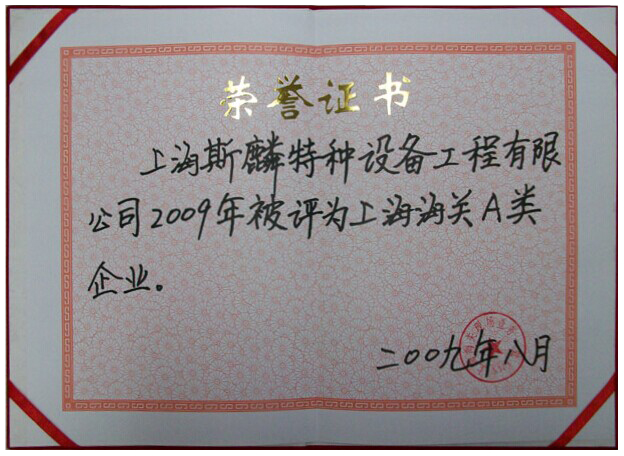 荣誉证书
上海斯麟特种设备工程有限
公司2009年被评为上海海关A类
企业。
二〇〇九年八月